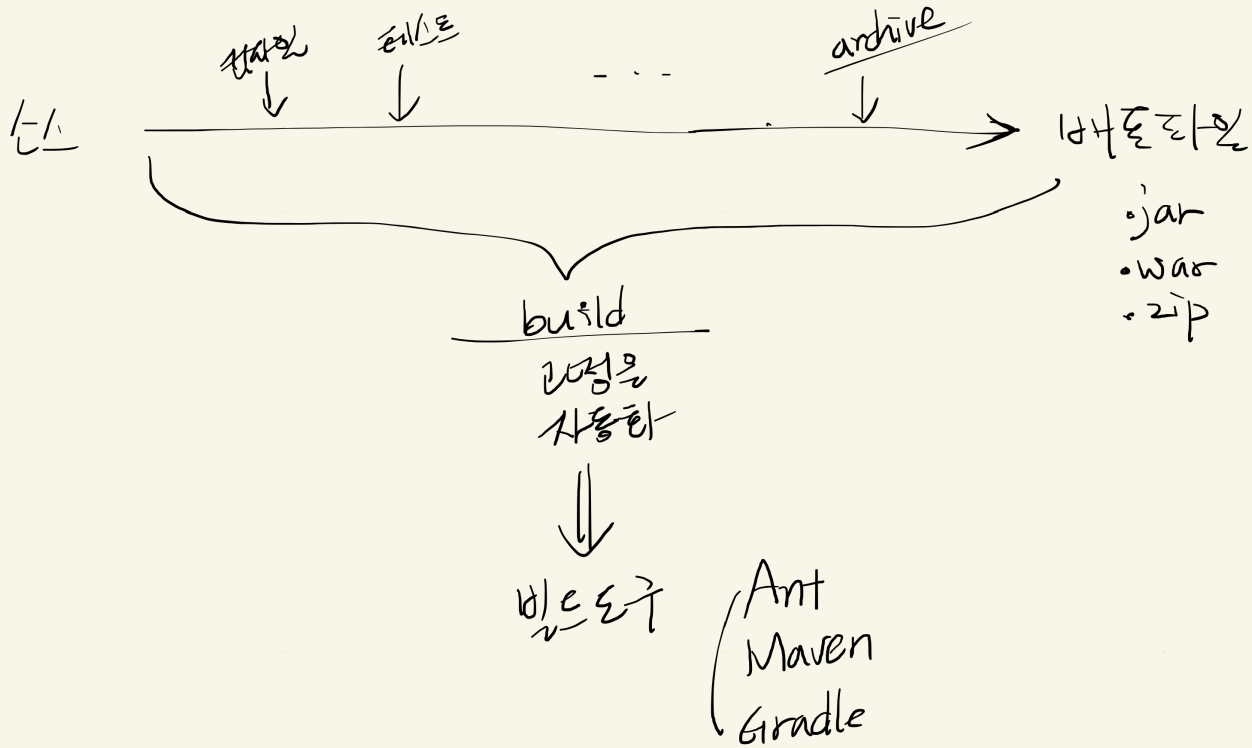 컴파일
테스트
- - - -
archive
소스
배포파일
.jar
.war
.zip
build
과정을
자동화
빌드도구
Ant
Maven
Gradle